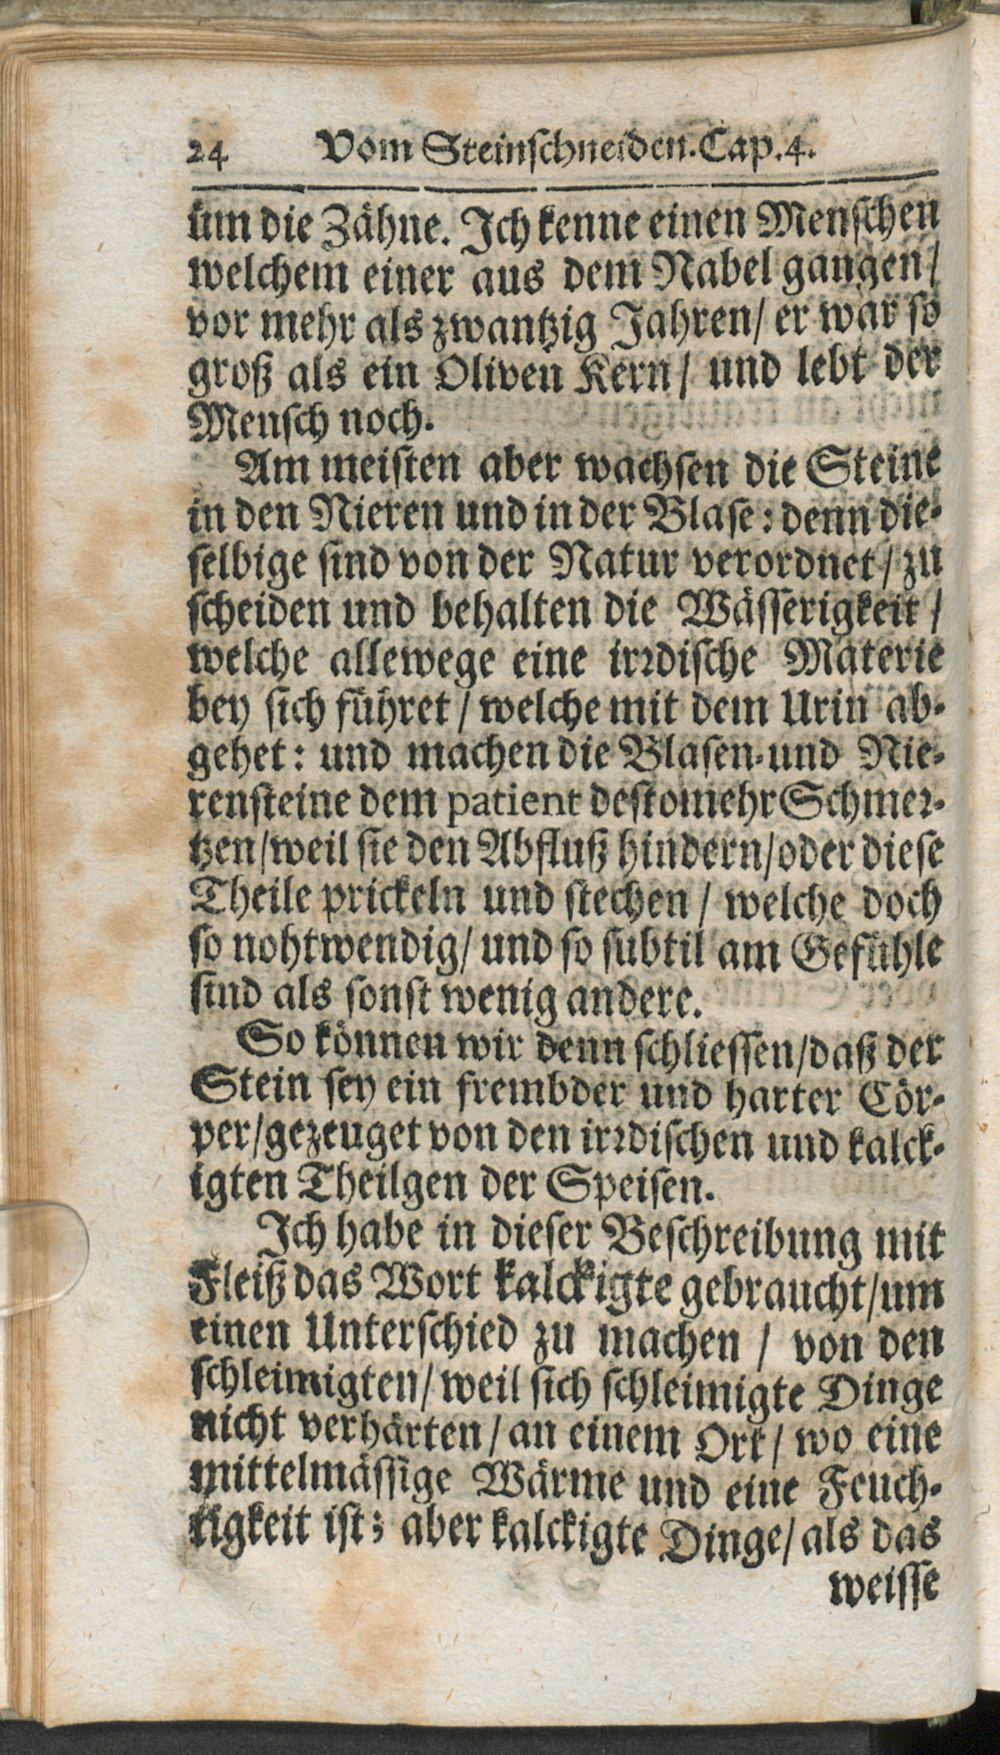 24 Vom Steinschneiden. Cap. 4.
üm die Zähne. Ich kenne einen Menschen
welchem einer aus dem Nabel gangen/
vor mehr als zwantzig Jahren/ er war so
groß als ein Oliven Kern/ und lebt der
Mensch noch.
Am meisten aber wachsen die Steine
in den Nieren und in der Blase: denn die-
selbige sind von der Natur verordnet/ zu
scheiden und behalten die Wässerigkeit/
welche allewege eine irrdische Materie
bey sich führet/ welche mit dem Urin ab-
gehet: und machen die Blasen- und Nie-
rensteine dem patient destomehr Schmer-
tzen/ weil sie den Abfluß hindern/ oder diese
Theile prickeln und stechen/ welche doch
so nohtwendig/ und so subtil am Gefühle
sind als sonst wenig andere.
So können wir denn schliessen/ daß der
Stein sey ein frembder und harter Cör-
per/ gezeuget von den irrdischen und kalck-
igten Theilgen der Speisen.
Ich habe in dieser Beschreibung mit
Fleiß das Wort kalckigte gebraucht/ um
einen Unterschied zu machen/ von den
schleimigten/ weil sich schleimigte Dinge
nicht verhärten/ an einem Ort/ wo eine
mittelmässige Wärme und eine Feuch-
tigkeit ist; aber kalckigte Dinge/ als das
weisse